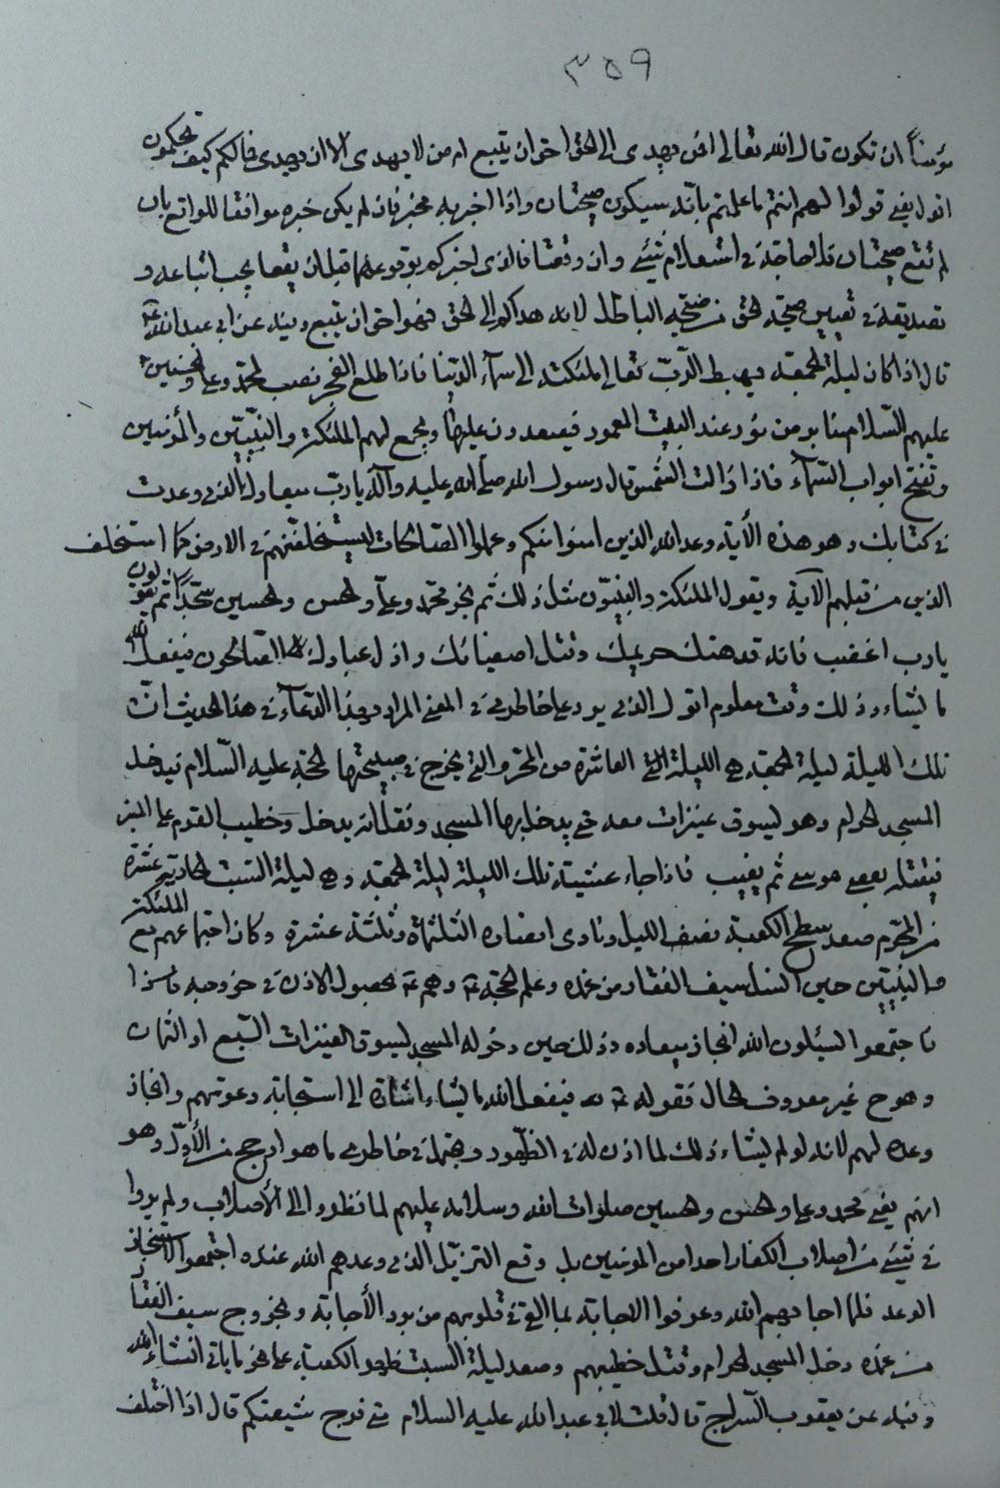 ٣٥٩
مؤمناً ان تكون قال الله تعالى افمن يهدى الى الحق احق ان يتبع ام من لا يهدى الا ان يهدى فما لكم كيف تحكمون
اقول يعنى قولوا لهم انتم ما علمتم بانه سيكون صيحتان واذا اخبر به مخبر فان لم يكن خبره موافقا للواقع بان
لم تقع صيحتان فلا حاجة فى استعلام شيئ وان وقعتا فالذى اخبركم بوقوعهما قبل ان يقعا يجب اتباعه و
تصديقه فى تعيين صيحة الحق من صيحة الباطل لانه هداكم الى الحق فهو احق ان يتبع وفيه عن ابى عبد الله ع
قال اذا كان ليلة الجمعة يهبط الرب تعالى ملئكته الى سمآء الدنيا فاذا طلع الفجر نصب لمحمد وعلى والحسنين
عليهم السلام منابر من نور عند البيت المعمور فيصعدون عليها ويجمع لهم الملئكة والنبيين والمؤمنين
وتفتح ابواب السمآء فاذا زالت الشمس قال رسول الله صلى الله عليه وآله يا رب ميعادك الذى وعدت
فى كتابك وهو هذه الأية وعد الله الذين امنوا منكم وعملوا الصالحات ليستخلفنهم فى الارض كما استخلف
الذين من قبلهم الآية ويقول الملئكة والنبيون مثل ذلك ثم يخر محمد وعلى والحسن والحسين سجدا ثم يقولون
يا رب اغضب فانه قد هتك حريمك وقتل اصفيائك واذل عبادك الصالحون فيفعل الله
ما يشاء وذلك وقت معلوم اقول الذى يرد على خاطرى فى المعنى المراد بهذا الدعآء فى هذا الحديث ان
تلك الليلة ليلة الجمعة هى الليلة العاشرة من المحرم والتى يخرج فى صبيحتها الحجة عليه السلام فيدخل
المسجد الحرام وهو يسوق عنيزات معه حتى يدخل بها المسجد ونقل انه يدخل وخطيب القوم على المنبر
فيقتله بعصى موسى ثم يغيب فاذا جاء عشية تلك الليلة ليلة الجمعة وهى ليلة السبت الحادية عشرة
من المحرم صعد سطح الكعبة نصف الليل ونادى انصاره الثلثمائة وثلثة عشرة وكان اجتماعهم مع الملئكة
والنبيين حين انسل سيف الفقار من غمده وعلم الحجة ع وهم ع بحصول الاذن فى خروجه
فاجتمعوا ليسئلون الله انجاز ميعاده وذلك حين دخوله المسجد ليسوق العنيزات السبع او الثمان
وهو ح غير معروف الحال فقوله ع فيفعل الله ما يشاء اشارة الى استجابة دعوتهم وانجاز
وعده لهم لانه لو لم يشاء ذلك لما اذن له فى الظهور ويحتمل فى خاطرى ما هو ارجح من الأول وهو
انهم يعنى محمد وعلى والحسن والحسين صلوات الله وسلامه عليهم لما نظروا الى الأصلاب ولم يروا
فى شيئ من اصلاب الكفار احدا من المؤمنين بل وقع التزيل الذى وعدهم الله عنده اجتمعوا لاستنجاز
الوعد فلما اجابهم الله وعرفوا الاجابة بما القى فى قلوبهم من برد الأجابة وبخروج سيف الفقار
من غمده دخل المسجد الحرام وقتل خطيبهم وصعد ليلة السبت ظهر الكعبة على نحو ما ياتى انشاء الله
وفيه عن يعقوب السراج قال قلت لابى عبد الله عليه السلام متى فرج شيعتكم قال اذا اختلف